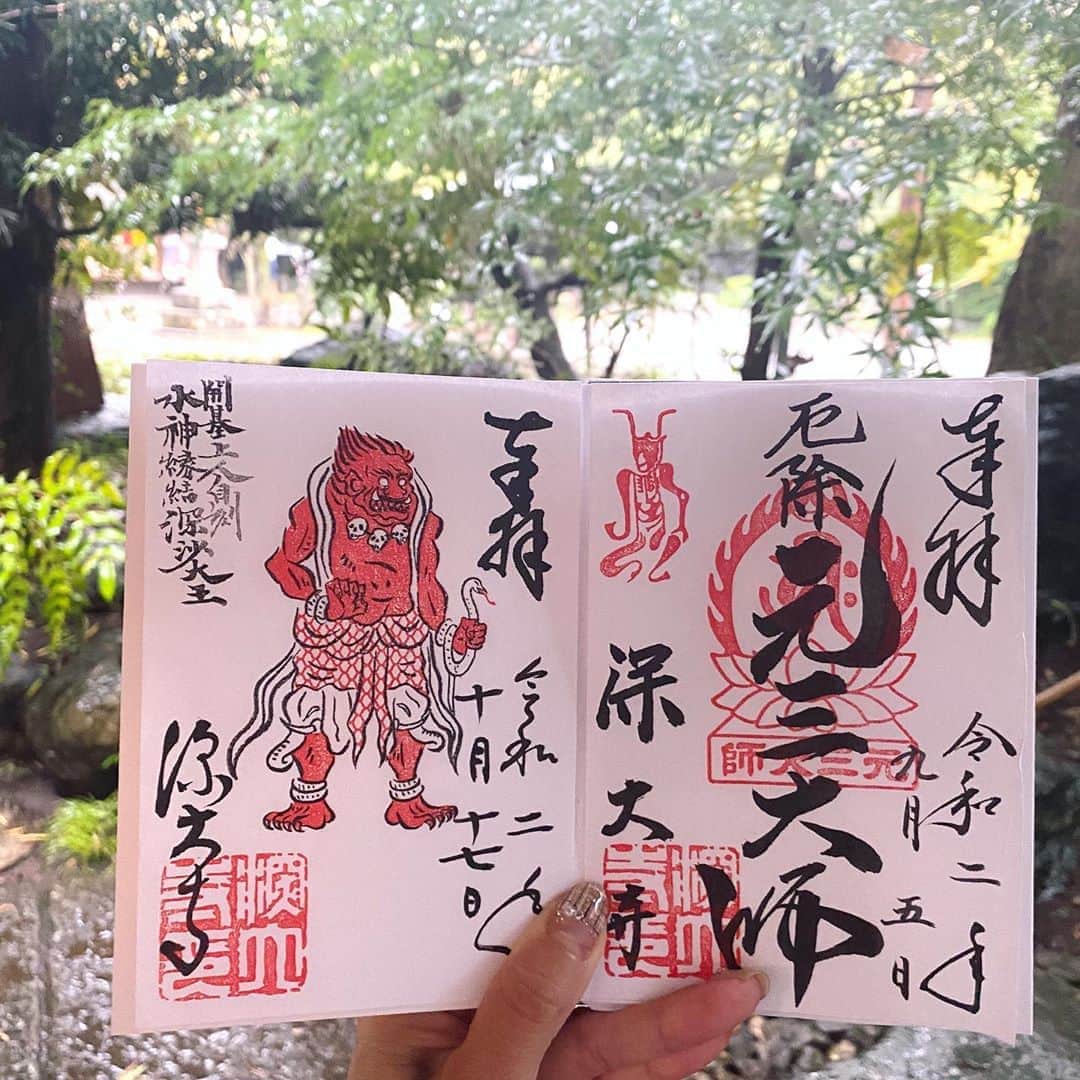 奉拝
令和二年
九月
五日
厄除
元三大師
元三大師
深大寺
奉拝
令和二年
十月
十七日
開基上人自刻
水神縁結深沙大王
深大寺